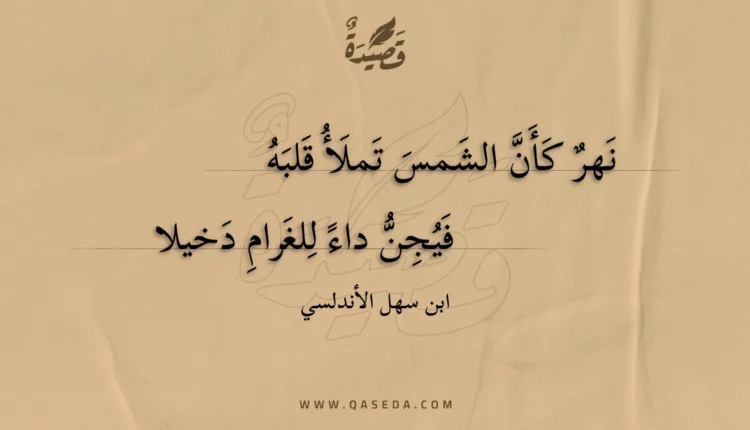 قَصِيدَةٌ
نَهرٌ كَأَنَّ الشَمسَ تَملَأُ قَلبَهُ
فَيُجِنُّ داءً لِلغَرامِ دَخيلا
ابن سهل الأندلسي
WWW.QASEDA.COM